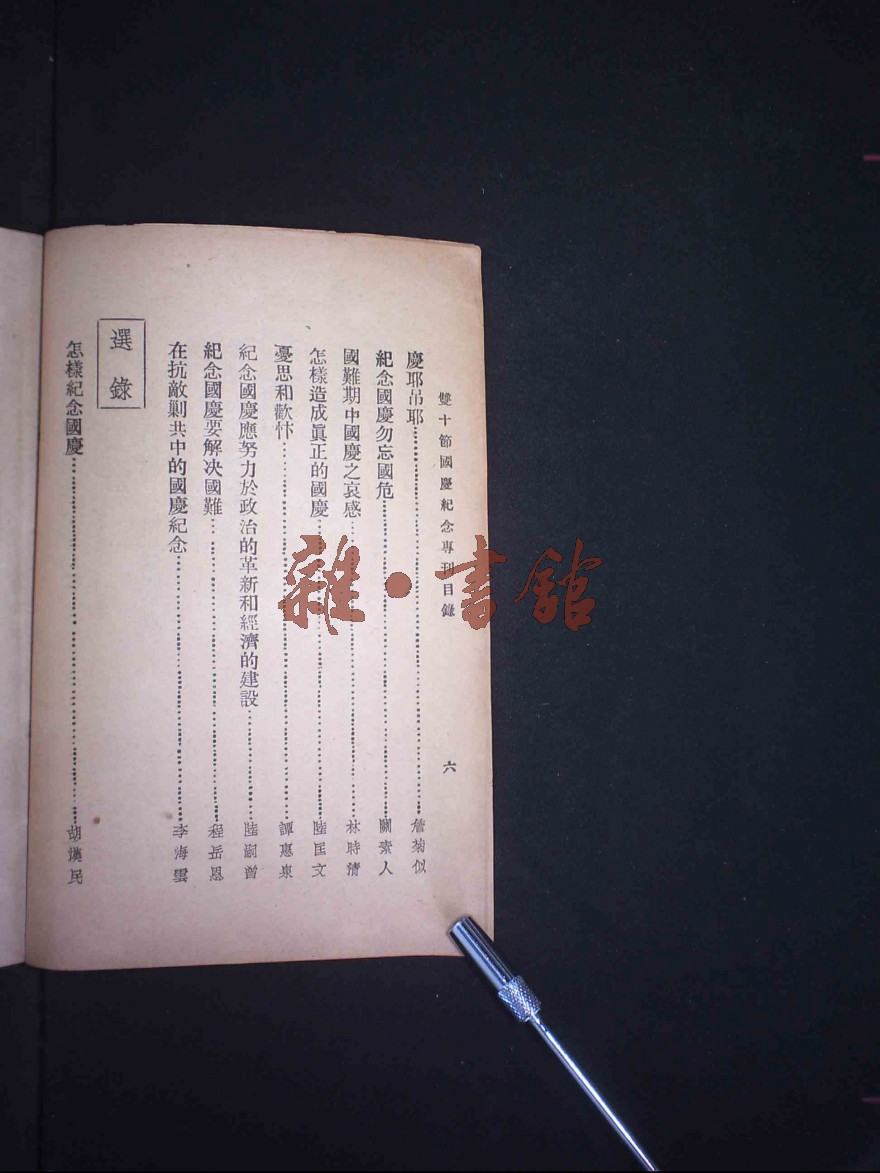 雙十節國慶紀念專刊目錄 六
慶耶吊耶……詹菊似
紀念國慶勿忘國危……關素人
國難期中國慶之哀感……林時清
怎樣造成眞正的國慶……陸匡文
憂思和歡忭……譚惠泉
紀念國慶應努力於政治的革新和經濟的建設……陸嗣曾
紀念國慶要解决國難……程岳恩
在抗敵剿共中的國慶紀念……李海雲
選錄
怎樣紀念國慶……胡漢民
雜·書館